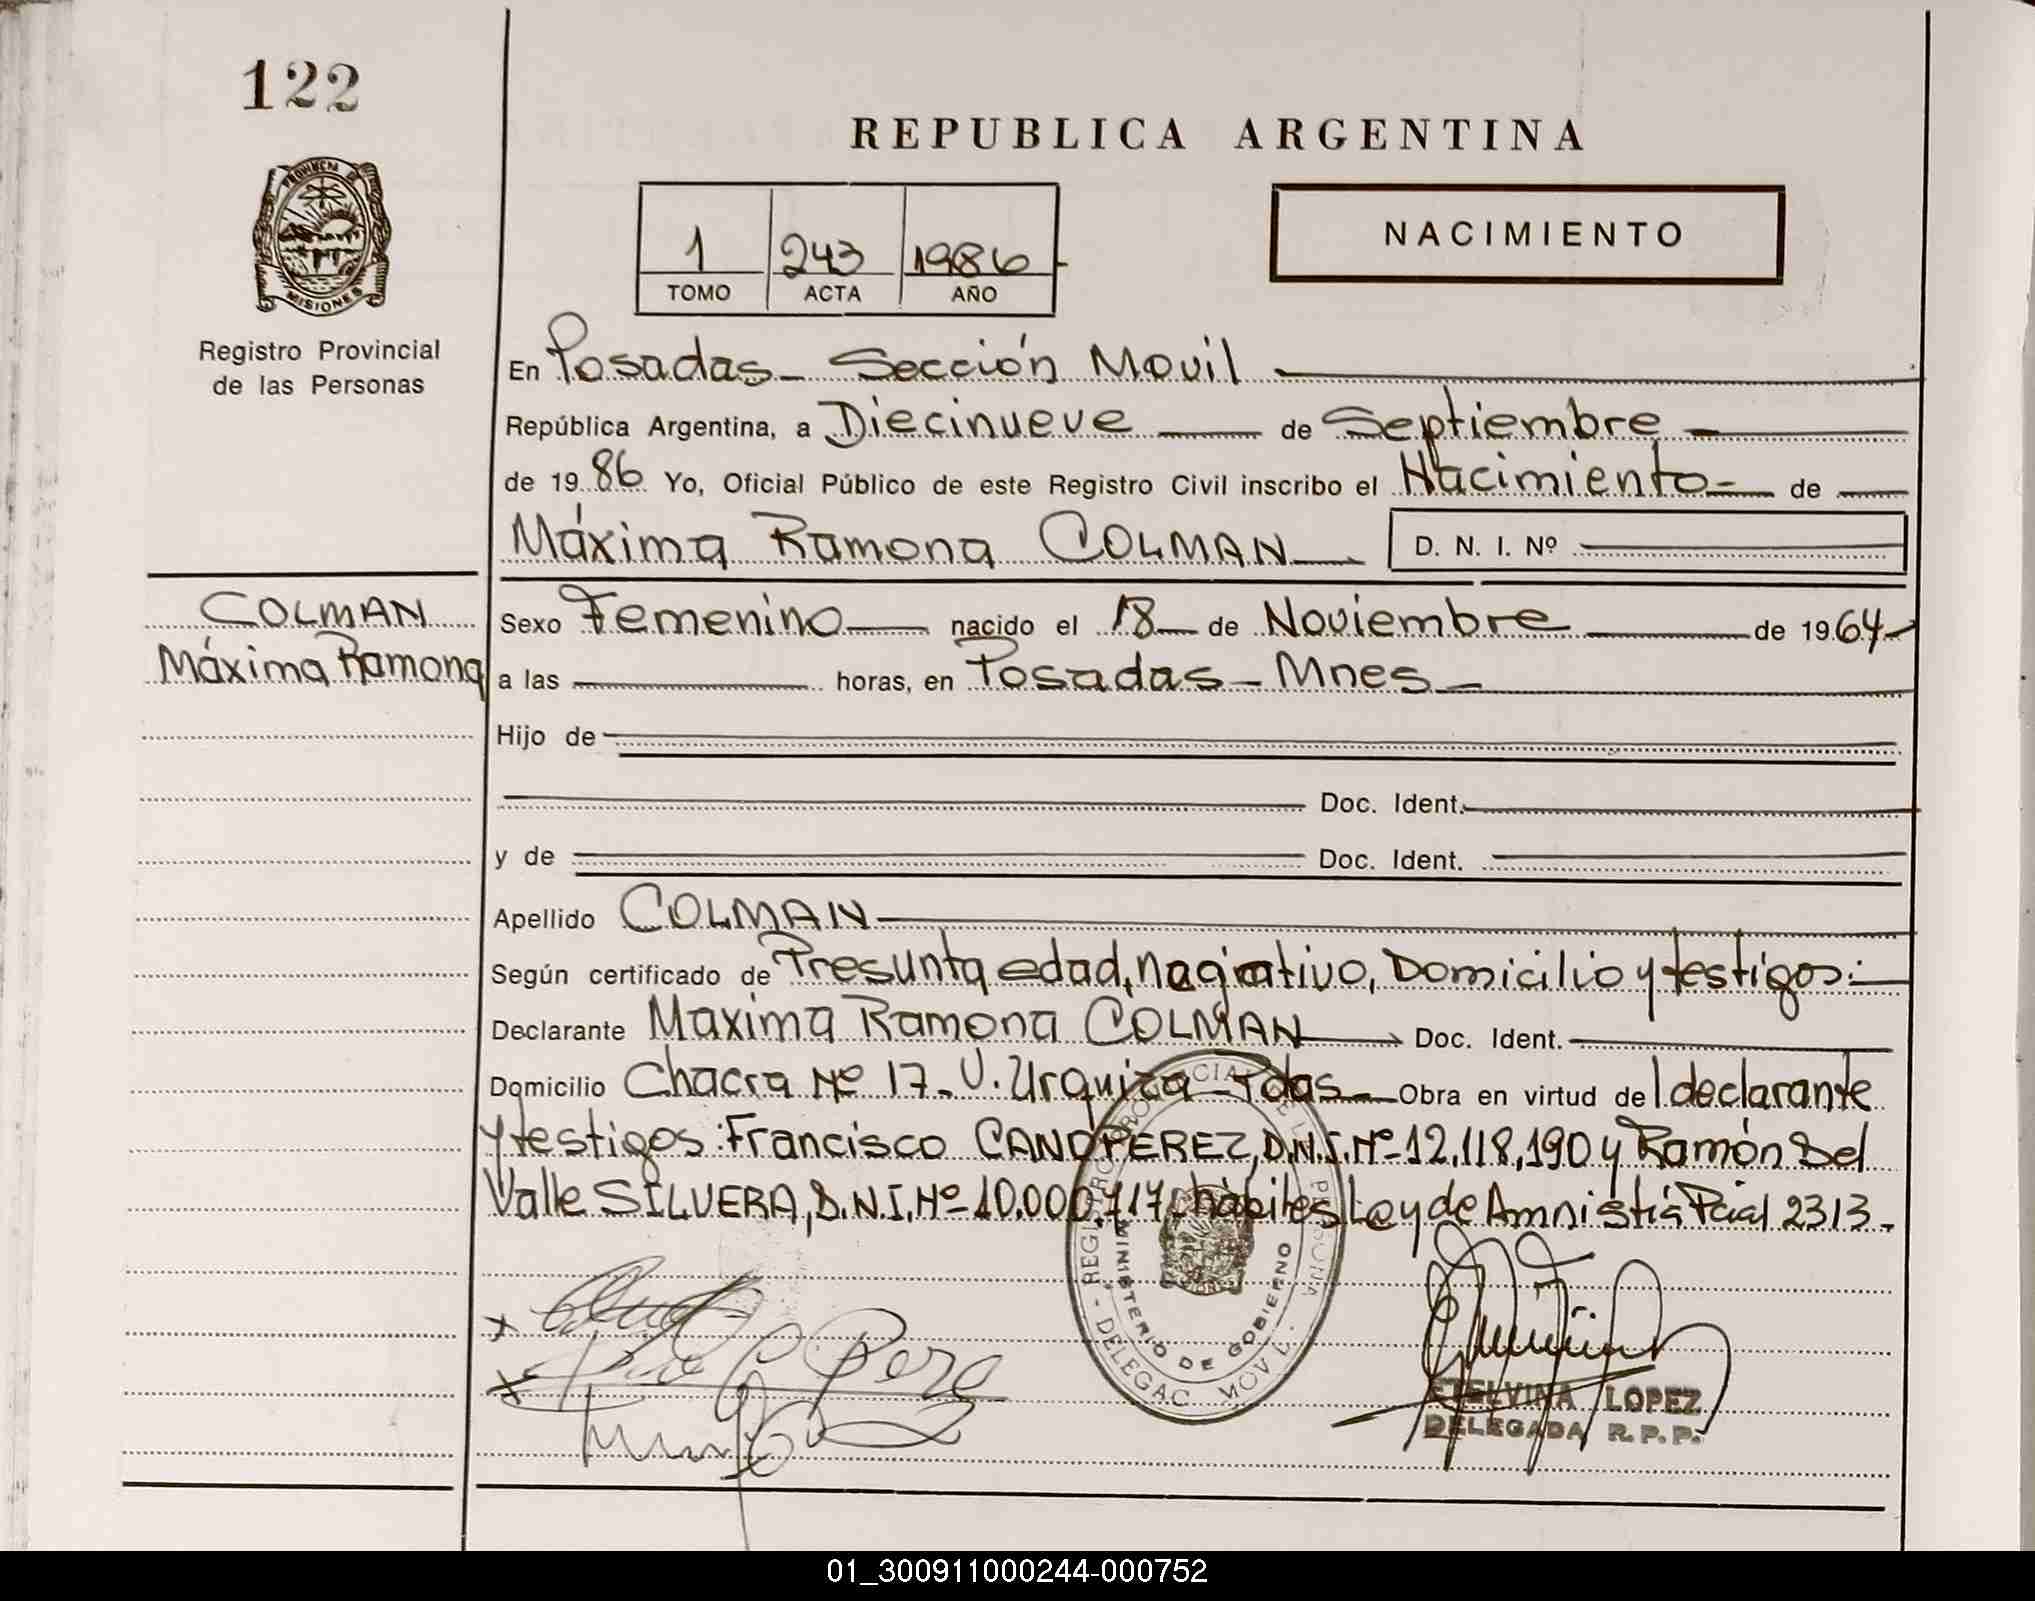 122
REPUBLICA ARGENTINA
PROVINCIA DE
MISIONES
1 243 1986
TOMO ACTA AÑO
NACIMIENTO
Registro Provincial
de las Personas
En Posadas - Sección Movil
República Argentina, a Diecinueve de Septiembre
de 1986 Yo, Oficial Público de este Registro Civil inscribo el Nacimiento - de
Máxima Ramona COLMAN D. N. I. Nº
COLMAN
Máxima Ramona
Sexo Femenino nacido el 18 de Noviembre de 1964
a las horas, en Posadas - Mnes -
Hijo de
Doc. Ident.
y de Doc. Ident.
Apellido COLMAN
Según certificado de Presunta edad, Domicilio y testigos:
Declarante Maxima Ramona COLMAN Doc. Ident.
Domicilio Chacra Nº 17 - V. Urquiza - Pdas - Obra en virtud del declarante
y testigos: Francisco CANO PEREZ, D.N.I. Nº 12.118.190 y Ramón Del
Valle SILVERA, D.N.I. Nº 10.000.717, hábiles, Ley de Amnistía Pcial 2313.
REGISTRO PROVINCIAL DE LAS PERSONAS
MINISTERIO DE GOBIERNO
DELEGAC. MOVIL
ETELVINA LOPEZ
DELEGADA R.P.P.
01_300911000244-000752